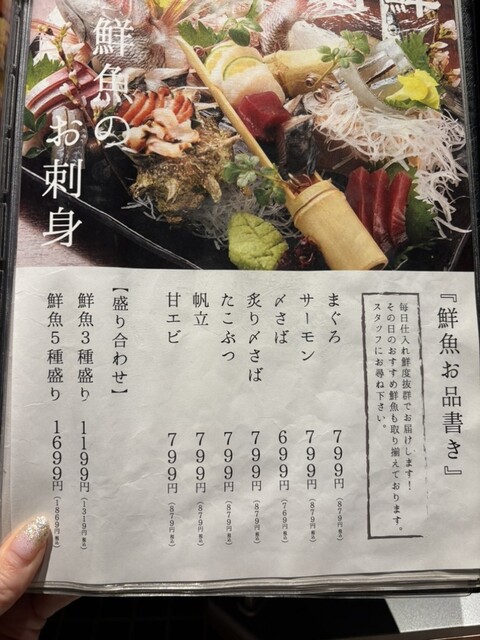 鮮魚の
お刺身
『鮮魚お品書き』
毎日仕入れ鮮度抜群でお届けします！
その日のおすすめ鮮魚も取り揃えております。
スタッフにお尋ね下さい。
まぐろ 799円(879円税込)
サーモン 799円(879円税込)
〆さば 699円(769円税込)
炙り〆さば 799円(879円税込)
たこぶつ 799円(879円税込)
帆立 799円(879円税込)
甘エビ 799円(879円税込)
【盛り合わせ】
鮮魚3種盛り 1199円(1319円税込)
鮮魚5種盛り 1699円(1869円税込)